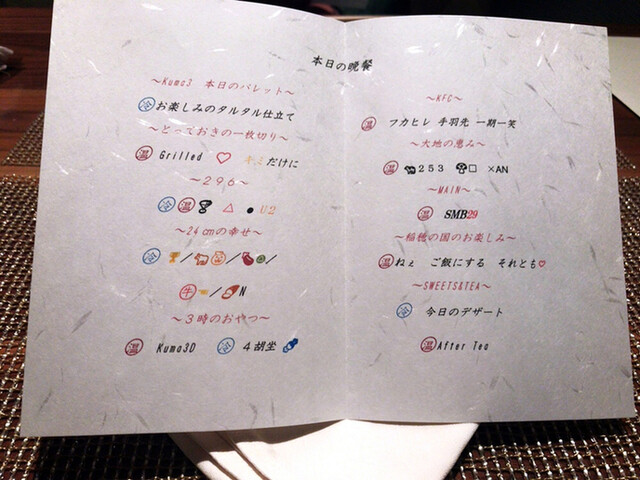 本日の晩餐
～Kuma3 本日のパレット～
冷 お楽しみのタルタル仕立て
～とっておきの一枚切り～
温 Grilled ♡ キミだけに
～２９６～
冷 温 △ ● U2
～24㎝の幸せ～
冷 ／ ／ ／
牛 ／ N
～３時のおやつ～
温 Kuma3D 冷 ４胡坐
～KFC～
温 フカヒレ 手羽先 一期一笑
～大地の恵み～
温 ２５３ □ ×AN
～MAIN～
温 SMB29
～稲穂の国のお楽しみ～
温 ねぇ ご飯にする それとも♡
～SWEETS&TEA～
冷 今日のデザート
温 After Tea